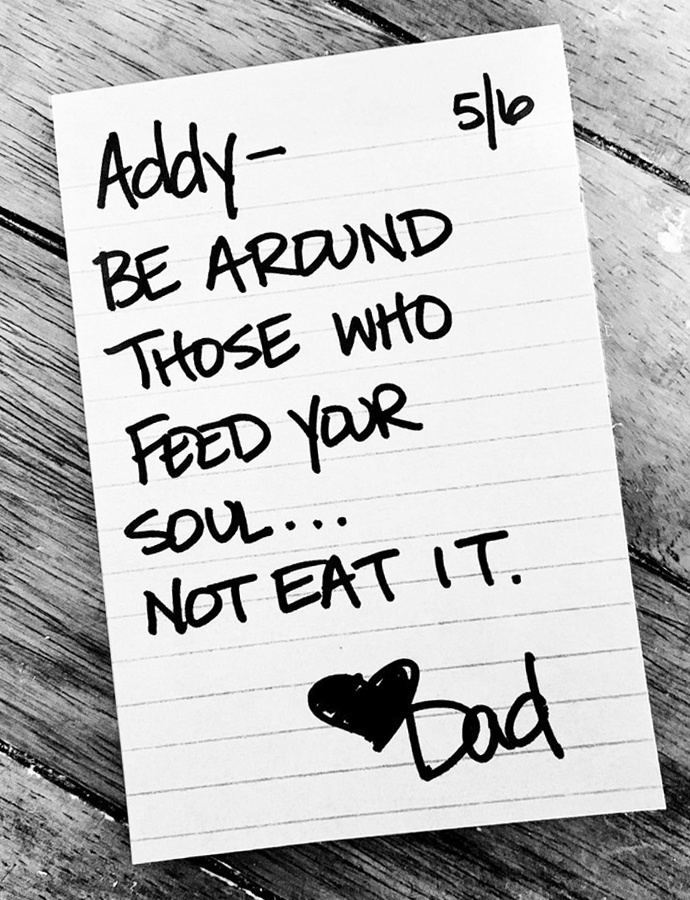 5/6
Addy-
BE AROUND
THOSE WHO
FEED YOUR
SOUL...
NOT EAT IT.
♥Dad